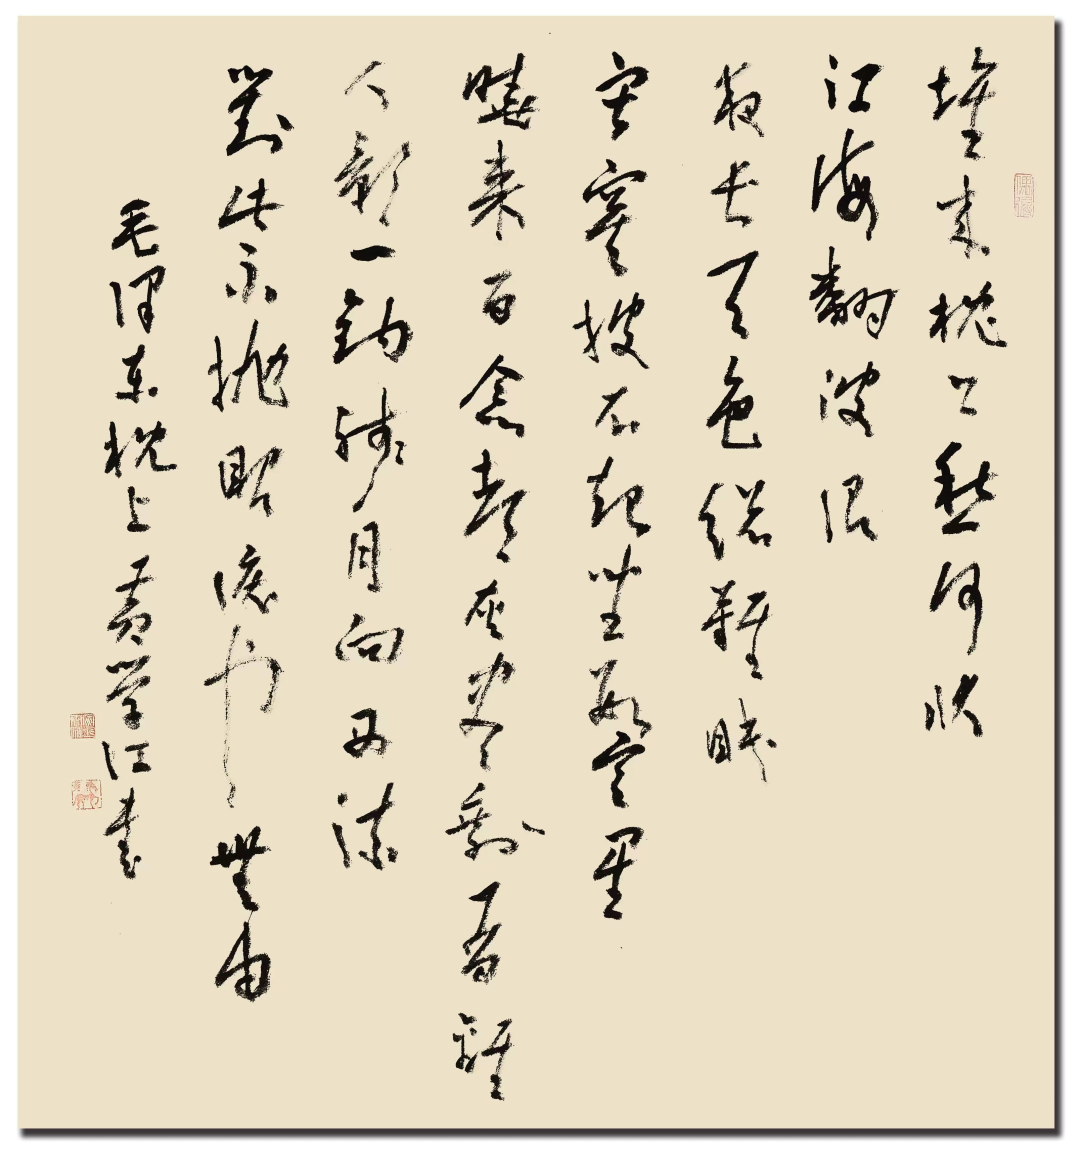 堆来枕上愁何状
江海翻波浪
夜长天色總難眀
寂寞披衣起坐数寒星
曉来百念都灰尽剩有離
人影一钩残月向西流
對此不抛眼泪也無由
毛泽东枕上黄学江书